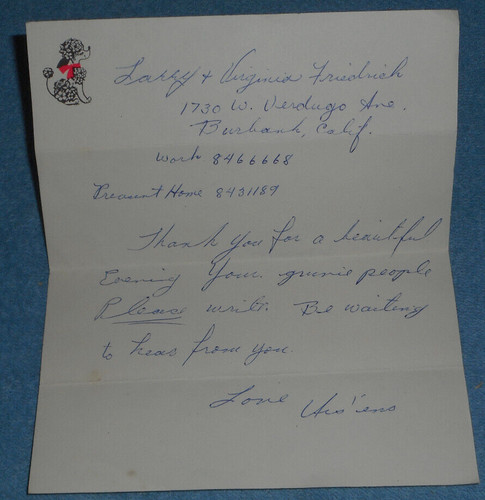 Larry + Virginia Friedrich
1730 W. Verdugo Ave.
Burbank, Calif.
Work 8466668
Preasunt Home 8431189
Thank you for a beautiful
Evening Your people
Please write. Be waiting
to hear from you.
Love